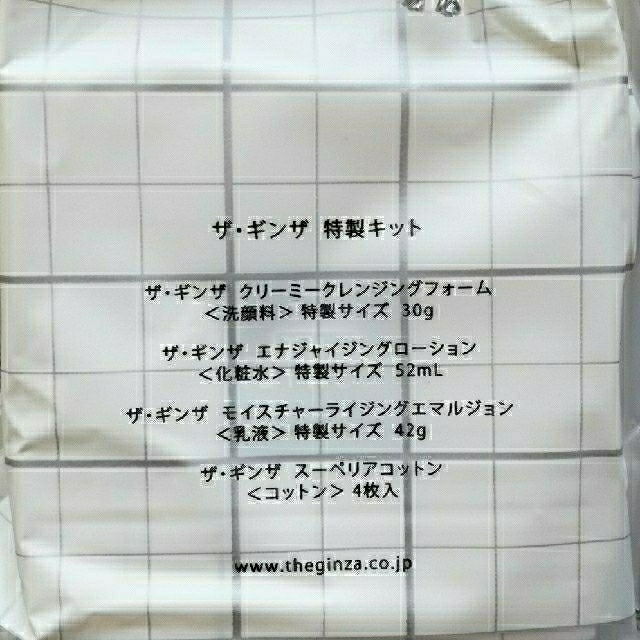 ザ・ギンザ 特製キット
ザ・ギンザ クリーミークレンジングフォーム
＜洗顔料＞ 特製サイズ 30g
ザ・ギンザ エナジャイジングローション
＜化粧水＞ 特製サイズ 52mL
ザ・ギンザ モイスチャーライジングエマルジョン
＜乳液＞ 特製サイズ 42g
ザ・ギンザ スーペリアコットン
＜コットン＞ 4枚入
www.theginza.co.jp